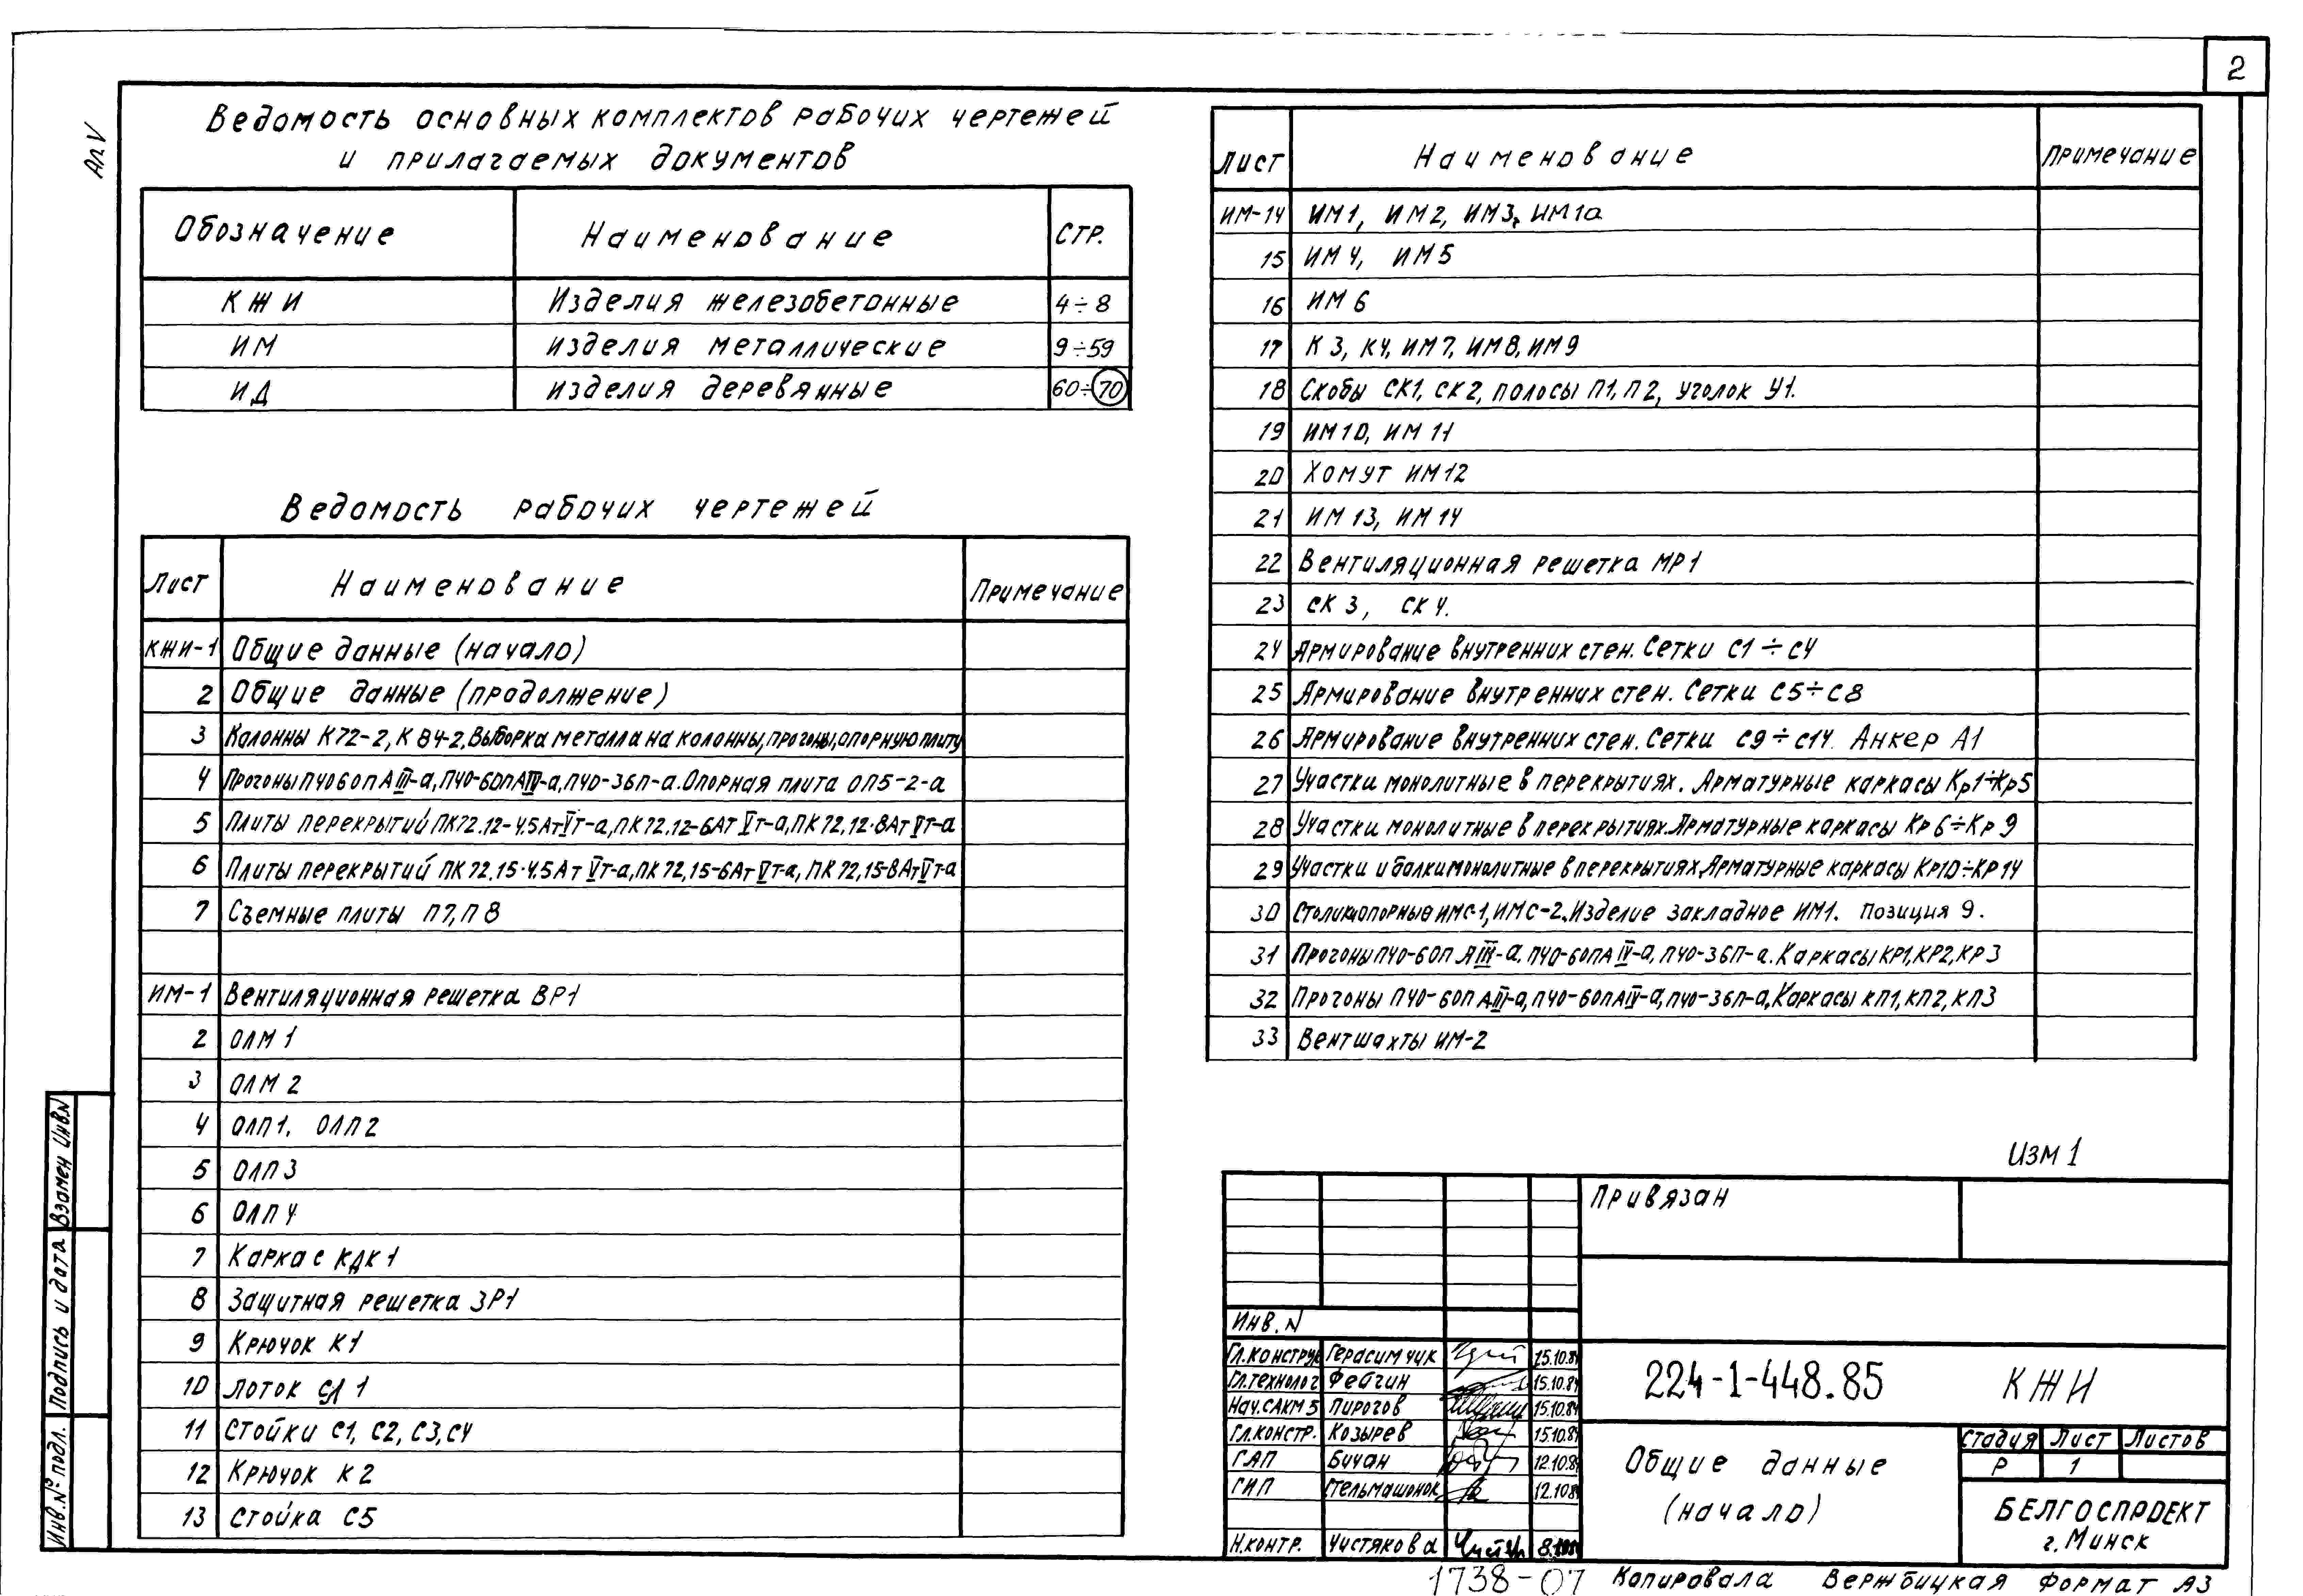 2
Ал V
Ведомость основных комплектов рабочих чертежей
и прилагаемых документов
Обозначение Наименование Стр.
КЖИ Изделия железобетонные 4÷8
ИМ изделия металлические 9÷59
ИД изделия деревянные 60÷70
Ведомость рабочих чертежей
Лист Наименование Примечание
КЖИ-1 Общие данные (начало)
2 Общие данные (продолжение)
3 Колонны К72-2, К84-2, Выборка металла на колонны, прогоны, опорную плиту
4 Прогоны ПЧ060пАIII-а, ПЧ0-60пАIV-а, ПЧ0-36п-а. Опорная плита ОП5-2-а
5 Плиты перекрытий ПК72.12-4.5АтVт-а, ПК72.12-6АтVт-а, ПК72.12-8АтVт-а
6 Плиты перекрытий ПК72.15-4.5АтVт-а, ПК72.15-6АтVт-а, ПК72.15-8АтVт-а
7 Съемные плиты П7, П8
ИМ-1 Вентиляционная решетка ВР1
2 ОЛМ 1
3 ОЛМ 2
4 ОЛП1. ОЛП2
5 ОЛП3
6 ОЛП4
7 Каркас КДК1
8 Защитная решетка ЗР1
9 Крючок К1
10 Лоток СЛ 1
11 Стойки С1, С2, С3, С4
12 Крючок К2
13 Стойка С5
Лист Наименование Примечание
ИМ-14 ИМ1, ИМ2, ИМ3, ИМ1а
15 ИМ4, ИМ5
16 ИМ6
17 К3, К4, ИМ7, ИМ8, ИМ9
18 Скобы СК1, СК2, полосы П1, П2, уголок У1.
19 ИМ10, ИМ11
20 Хомут ИМ12
21 ИМ13, ИМ14
22 Вентиляционная решетка МР1
23 СК3, СК4.
24 Армирование внутренних стен. Сетки С1÷С4
25 Армирование внутренних стен. Сетки С5÷С8
26 Армирование внутренних стен. Сетки С9÷С14. Анкер А1
27 Участки монолитные в перекрытиях. Арматурные каркасы Кр1÷Кр5
28 Участки монолитные в перекрытиях. Арматурные каркасы Кр6÷Кр9
29 Участки и балки монолитные в перекрытиях. Арматурные каркасы КР10÷КР14
30 Столики опорные ИМС-1, ИМС-2. Изделие закладное ИМ1. Позиция 9.
31 Прогоны ПЧ0-60п АIII-а, ПЧ0-60пАIV-а, ПЧ0-36п-а. Каркасы КР1, КР2, КР3
32 Прогоны ПЧ0-60пАIII-а, ПЧ0-60пАIV-а, ПЧ0-36п-а, Каркасы КП1, КП2, КП3
33 Вентшахты ИМ-2
Изм 1
Привязан
Инв. N
Гл.конструк Герасимчик 15.10.84
Гл.технолог Фейгин 15.10.84
Нач.САКМ5 Пирогов 15.10.84
Гл.констр. Козырев 15.10.84
ГАП Бичан 12.10.84
ГИП Стельмашонок 12.10.84
Н.контр. Чистякова
224-1-448.85 КЖИ
Общие данные
(начало)
Стадия Лист Листов
Р 1
БЕЛГОСПРОЕКТ
г. Минск
1738-07 Копировала Вержбицкая Формат А3
Взамен Инв.N
Подпись и дата
Инв.№ подл.